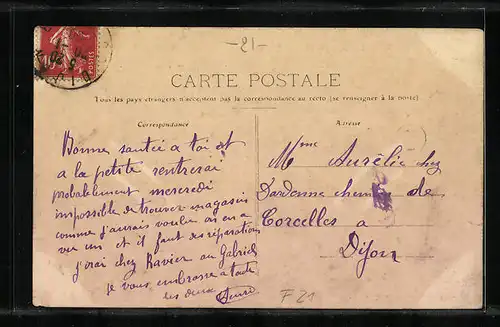 -21-
CARTE POSTALE
Tous les pays étrangers n'acceptent pas la correspondance au recto (se renseigner à la poste)
Correspondance
Adresse
Bonne santée a toi et
a la petite rentrerai
probablement mercredi
impossible de trouver magasin
comme j'aurais voulu on en a
vu un et il faut des réparations
j'irai chez Ravier au Gabriel
je vous embrasse a toute
les deux
Mme Aurélie chez
Dardenne chemin de
Corcelles a
Dijon
F21
POSTES